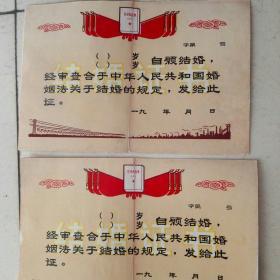 字第 号
( ) 岁
( ) 岁 自愿结婚,
经审查合于中华人民共和国婚
姻法关于结婚的规定,发给此
证。
一九 年 月 日
字第 号
( ) 岁
( ) 岁 自愿结婚,
经审查合于中华人民共和国婚
姻法关于结婚的规定,发给此
证。
一九 年 月 日